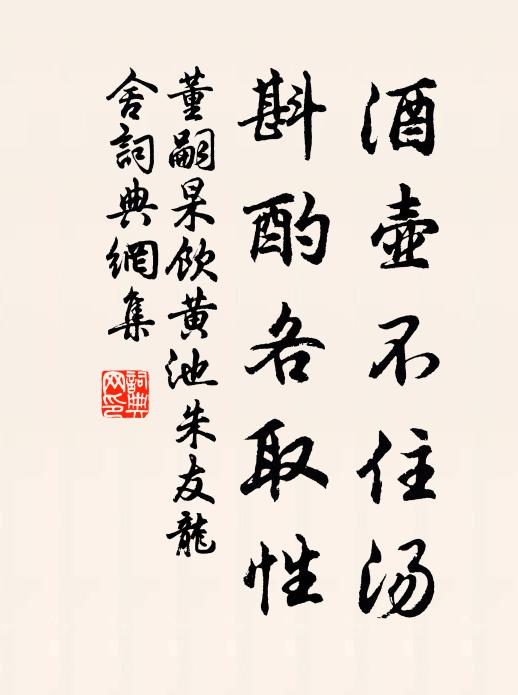 酒壺不住汤
斟酌各取性
董嗣杲飲黄池朱友龍
舍詞典網集
詞典
网印